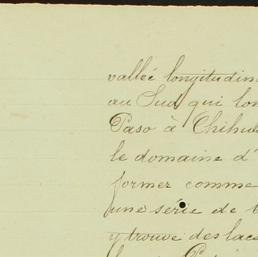 vallée longitudin
au Sud qui lon
Paso à Chihu
le domaine d'
former comme
une série de
y trouve des lacs